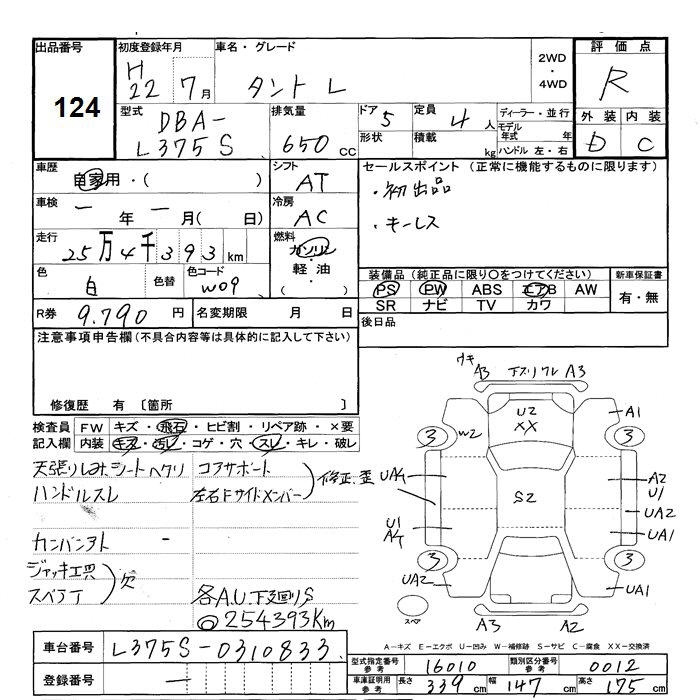 出品番号 124
初度登録年月 H 22 7月
車名・グレード タント L
2WD ・ 4WD
評価点 R
外装 内装
D C
型式 DBA-
L375S
排気量 650 cc
ドア 5
形状
定員 4 人
積載 kg
ディーラー・並行
モデル年式 年式
ハンドル 左・右
車歴 自家用・( )
シフト AT
セールスポイント (正常に機能するものに限ります)
・初出品
・キーレス
車検 ー年ー月( 日)
冷房 AC
走行 25万4千393km
燃料 ガソリン・軽油・( )
色 白
色替
色コード W09
装備品 (純正品に限り○をつけてください)
新車保証書
PS PW ABS エアB AW
有・無
SR ナビ TV カワ
R券 9.790 円
名変期限 月 日
後日品
注意事項申告欄 (不具合内容等は具体的に記入して下さい)
修復歴 有 〔箇所 〕
検査員 FW キズ・飛石・ヒビ割・リペア跡・×要
記入欄 内装 キズ・汚レ・コゲ・穴・スレ・キレ・破レ
天張りしみ、シートヘタリ
コアサポート
ハンドルスレ
左右Fサイドメンバー
修正、歪
カンバンアト
ジャッキ工具
スペラT
欠
各A.U.下廻りS
◎254393Km
ウキ
A3 下スリワレ A3
A1
U2
XX
W2
3
3
UA4
A2
U1
S2
UA2
U1
A4
UA1
3
3
UA2
UA1
スペア
A3 A2
A-キズ E-エクボ U-凹み W-補修跡 S-サビ C-腐食 XX-交換済
車台番号 L375S-0310833
型式指定番号 参考 16010
類別区分番号 参考 0012
登録番号 ー
車庫証明用 参考 長さ 339 cm 幅 147 cm 高さ 175 cm